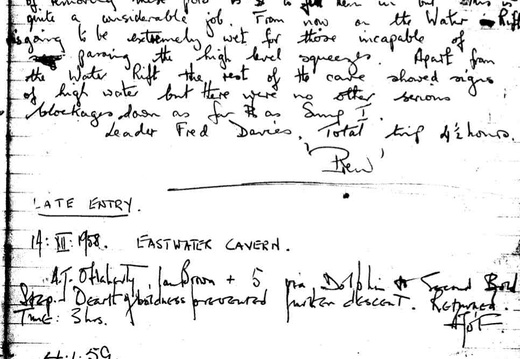 of removing these
quite a considerable job. From now on the Water Rift
is going to be extremely wet for those incapable of
passing the high level squeezes. Apart from
the Water Rift the rest of the cave showed signs
of high water but there were no other serious
blockages down as far as Sump I.
Leader Fred Davies. Total trip 4½ hours.
'Prew'
LATE ENTRY.
14: XII: 1958. EASTWATER CAVERN.
A.J. O'Flaherty, Ian Brown + 5 via Dolphin to Second Bold
Step. Dearth of boldness prevented further descent. Returned.
Time: 3hrs. AJO'F.
4:1:59